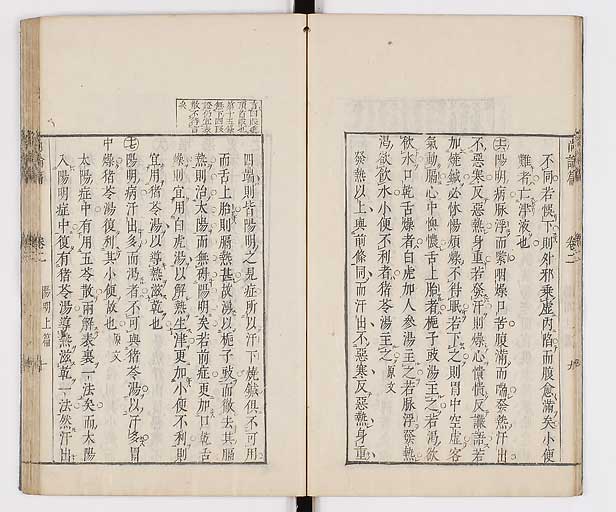 不同若悞下則外邪乗虚內陷而腹愈滿矣小便
難者亡津液也
陽明病脉浮而緊咽燥口苦腹滿而喘發熱汗出
不惡寒反惡熱身重若發汗則燥心憒憒反讝語若
加燒鍼必怵惕煩燥不得眠若下之則胃中空虚客
氣動膈心中懊憹舌上胎者梔子豉湯主之若渴欲
飲水口乾舌燥者白虎加人參湯主之若脉浮發熱
渴欲飲水小便不利者猪苓湯主之原文
發熱以上與前條同而汗出不惡寒反惡熱身重
尚論篇
卷二
九
四端則皆陽明之見症所以汗下燒鍼俱不可用
而舌上胎則膈熱甚故湯以梔子豉而微去其膈
熱則治太陽而無碍陽明矣若前症更加口乾舌
燥則宜用白虎湯以解熱生津更加小便不利則
宜用猪苓湯以導熱滋乾也
陽明病汗出多而渴者不可與猪苓湯以汗多胃
中燥猪苓湯復利其小便故也原文
太陽症中有用五苓散兩解表裏一法矣而太陽
入陽明症中復有猪苓湯導熱滋乾一法然汗出
卷二
陽明上篇
十